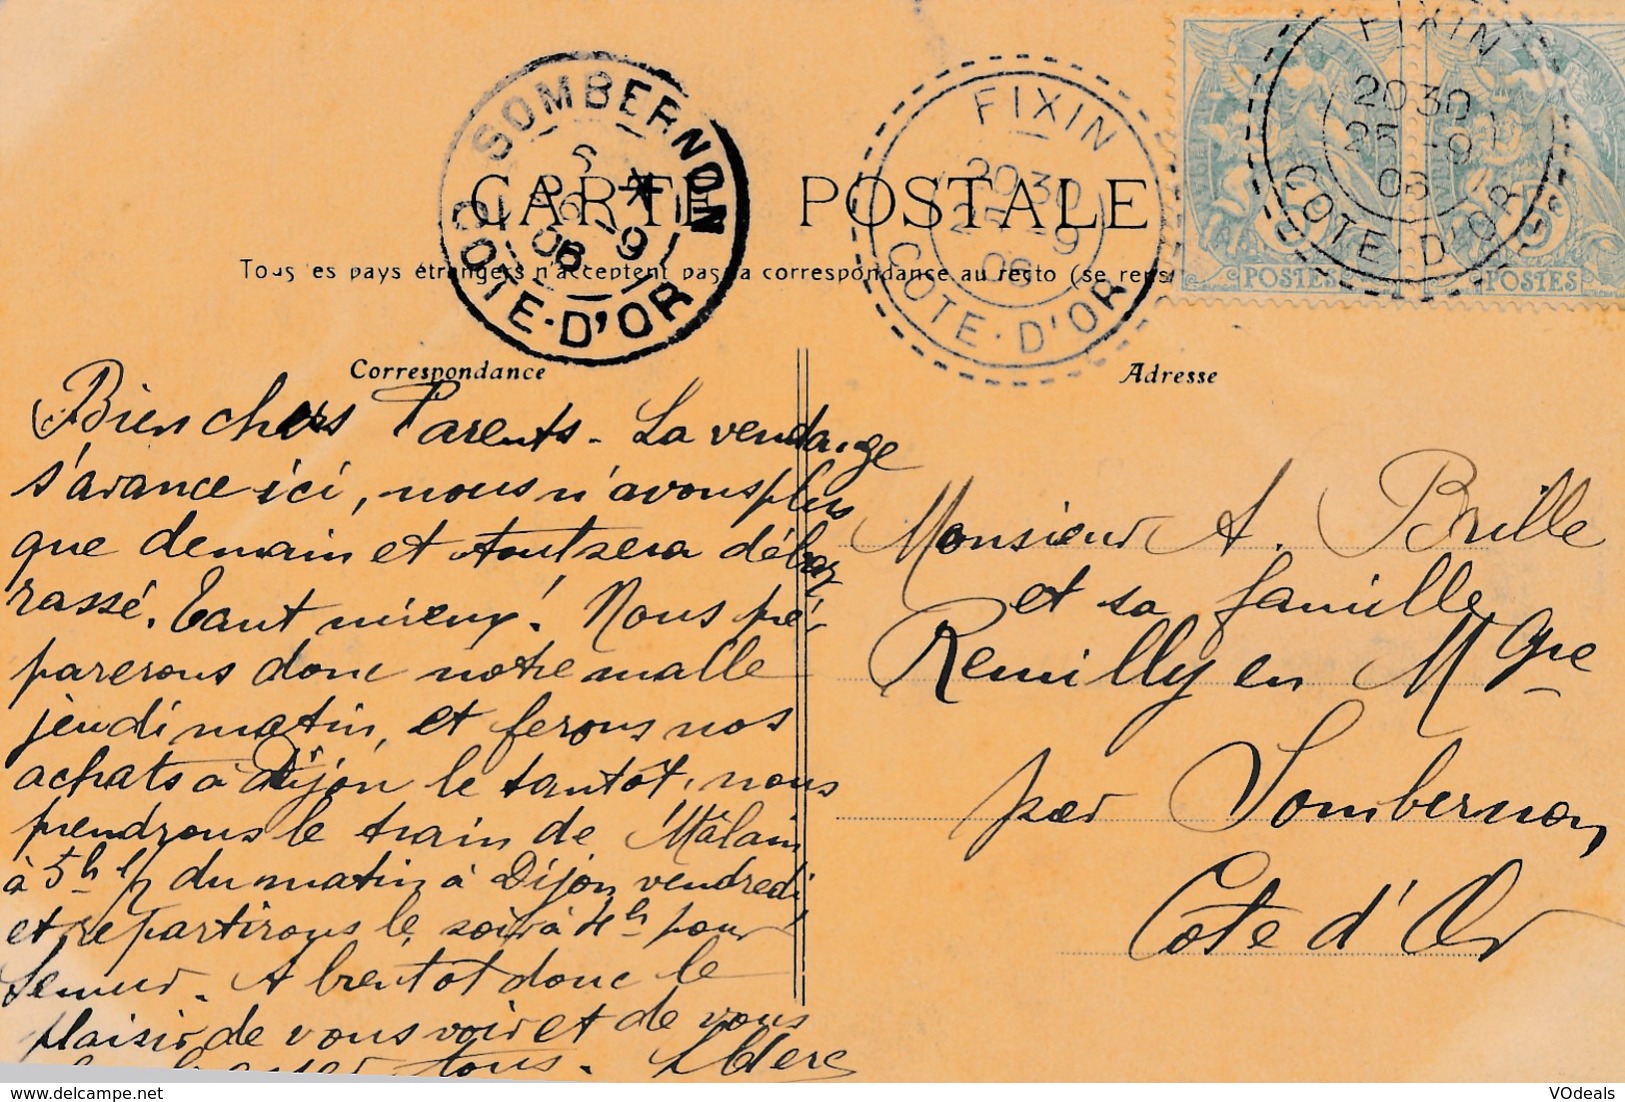 SOMBERNON
6 *
26 -9
06
COTE-D'OR
FIXIN
20 30
25 -9
06
COTE-D'OR
FIXIN
20 30
25 -9
06
COTE D'OR
POSTES
POSTES
CARTE POSTALE
Tous les pays étrangers n'acceptent pas la correspondance au recto (se rens
Correspondance
Adresse
Bien chers Parents - La vendange
s'avance ici, nous n'avons plus
que demain et tout sera débar
rassé. Tant mieux! Nous pré
parerons donc notre malle
jeudi matin, et ferons nos
achats à Dijon le tantôt, nous
prendrons le train de Mâlain
à 5h ½ du matin à Dijon vendredi
et repartirons le soir à 4h pour
Semur. A bientôt donc le
plaisir de vous voir et de vous
embrasser tous.
Monsieur A. Brille
et sa famille
Remilly en Mgne
par Sombernon
Côte d'Or
www.delcampe.net
VOdeals